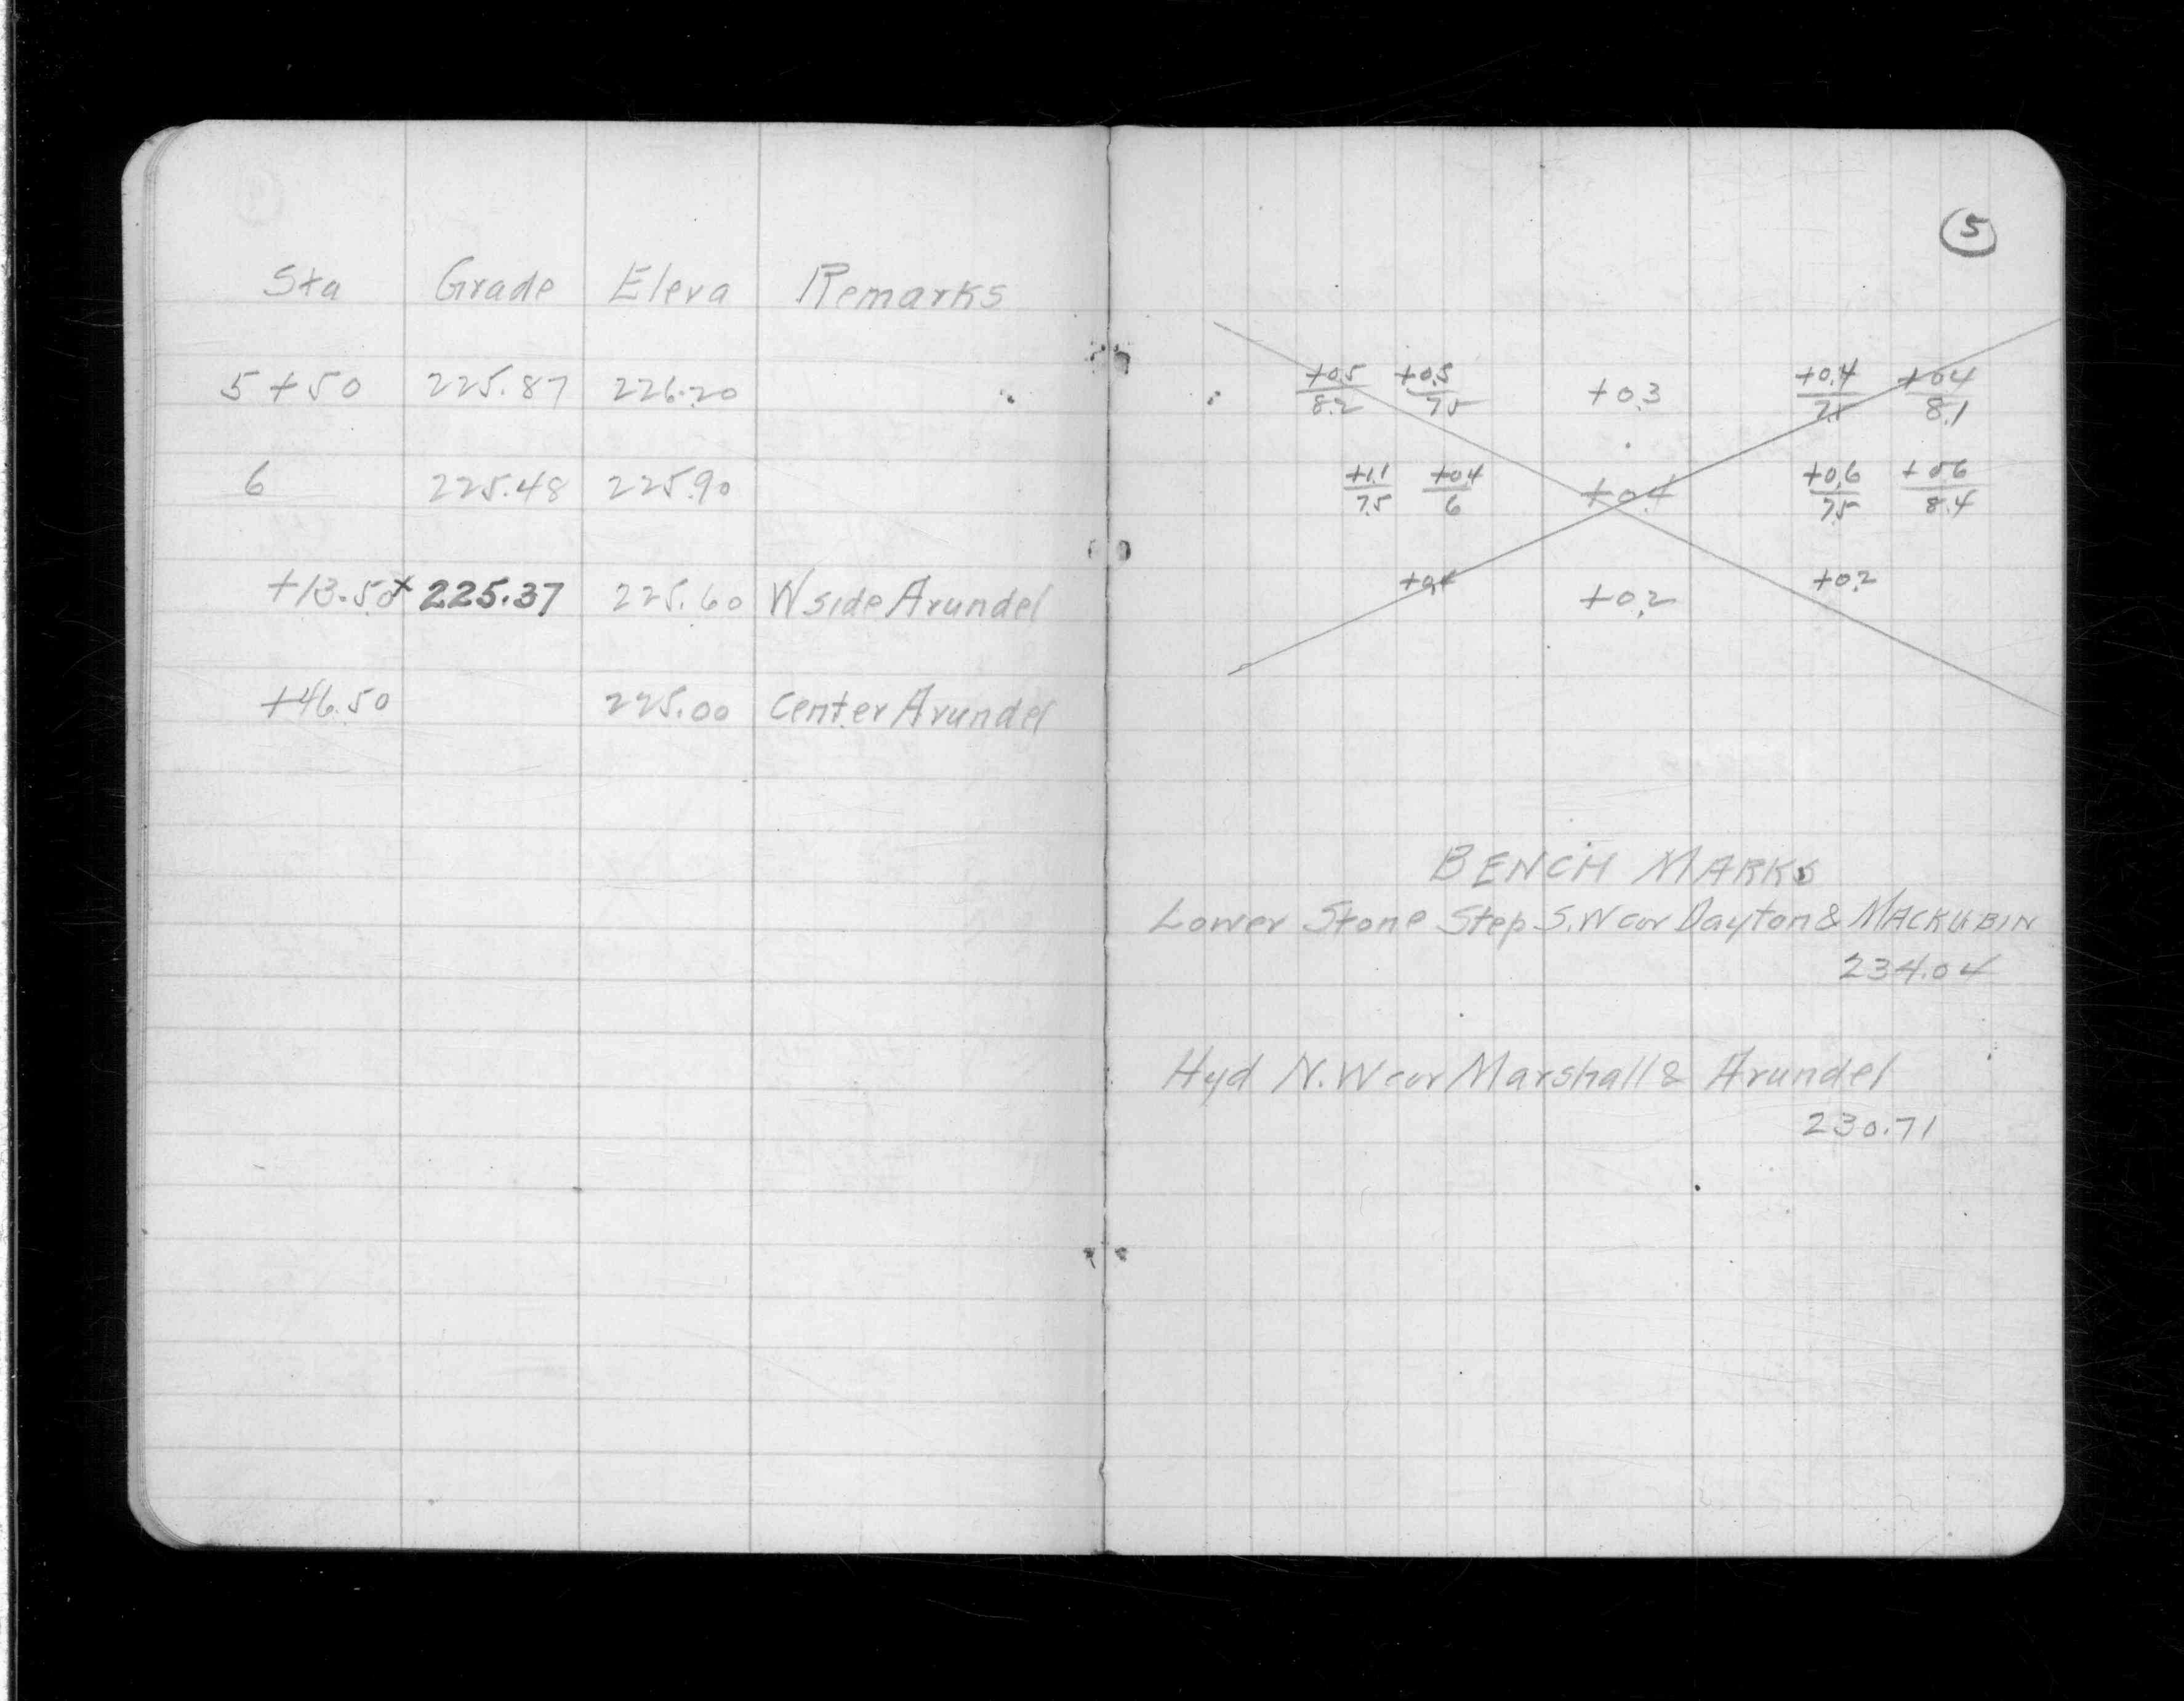 Sta Grade Eleva Remarks
5+50 225.87 226.20
6 225.48 225.90
+13.50 x 225.37 225.60 W side Arundel
+46.50 225.00 Center Arundel
5
+0.5/8.2 +0.5/7.5 +0.3 +0.4/7.5 +0.4/8.1
+1.1/7.5 +0.4/6 +0.4 +0.6/7.5 +0.6/8.4
+0.2 +0.2
BENCH MARKS
Lower Stone Step S.W cor Dayton & MACKUBIN
234.04
Hyd N.W cor Marshall & Arundel
230.71